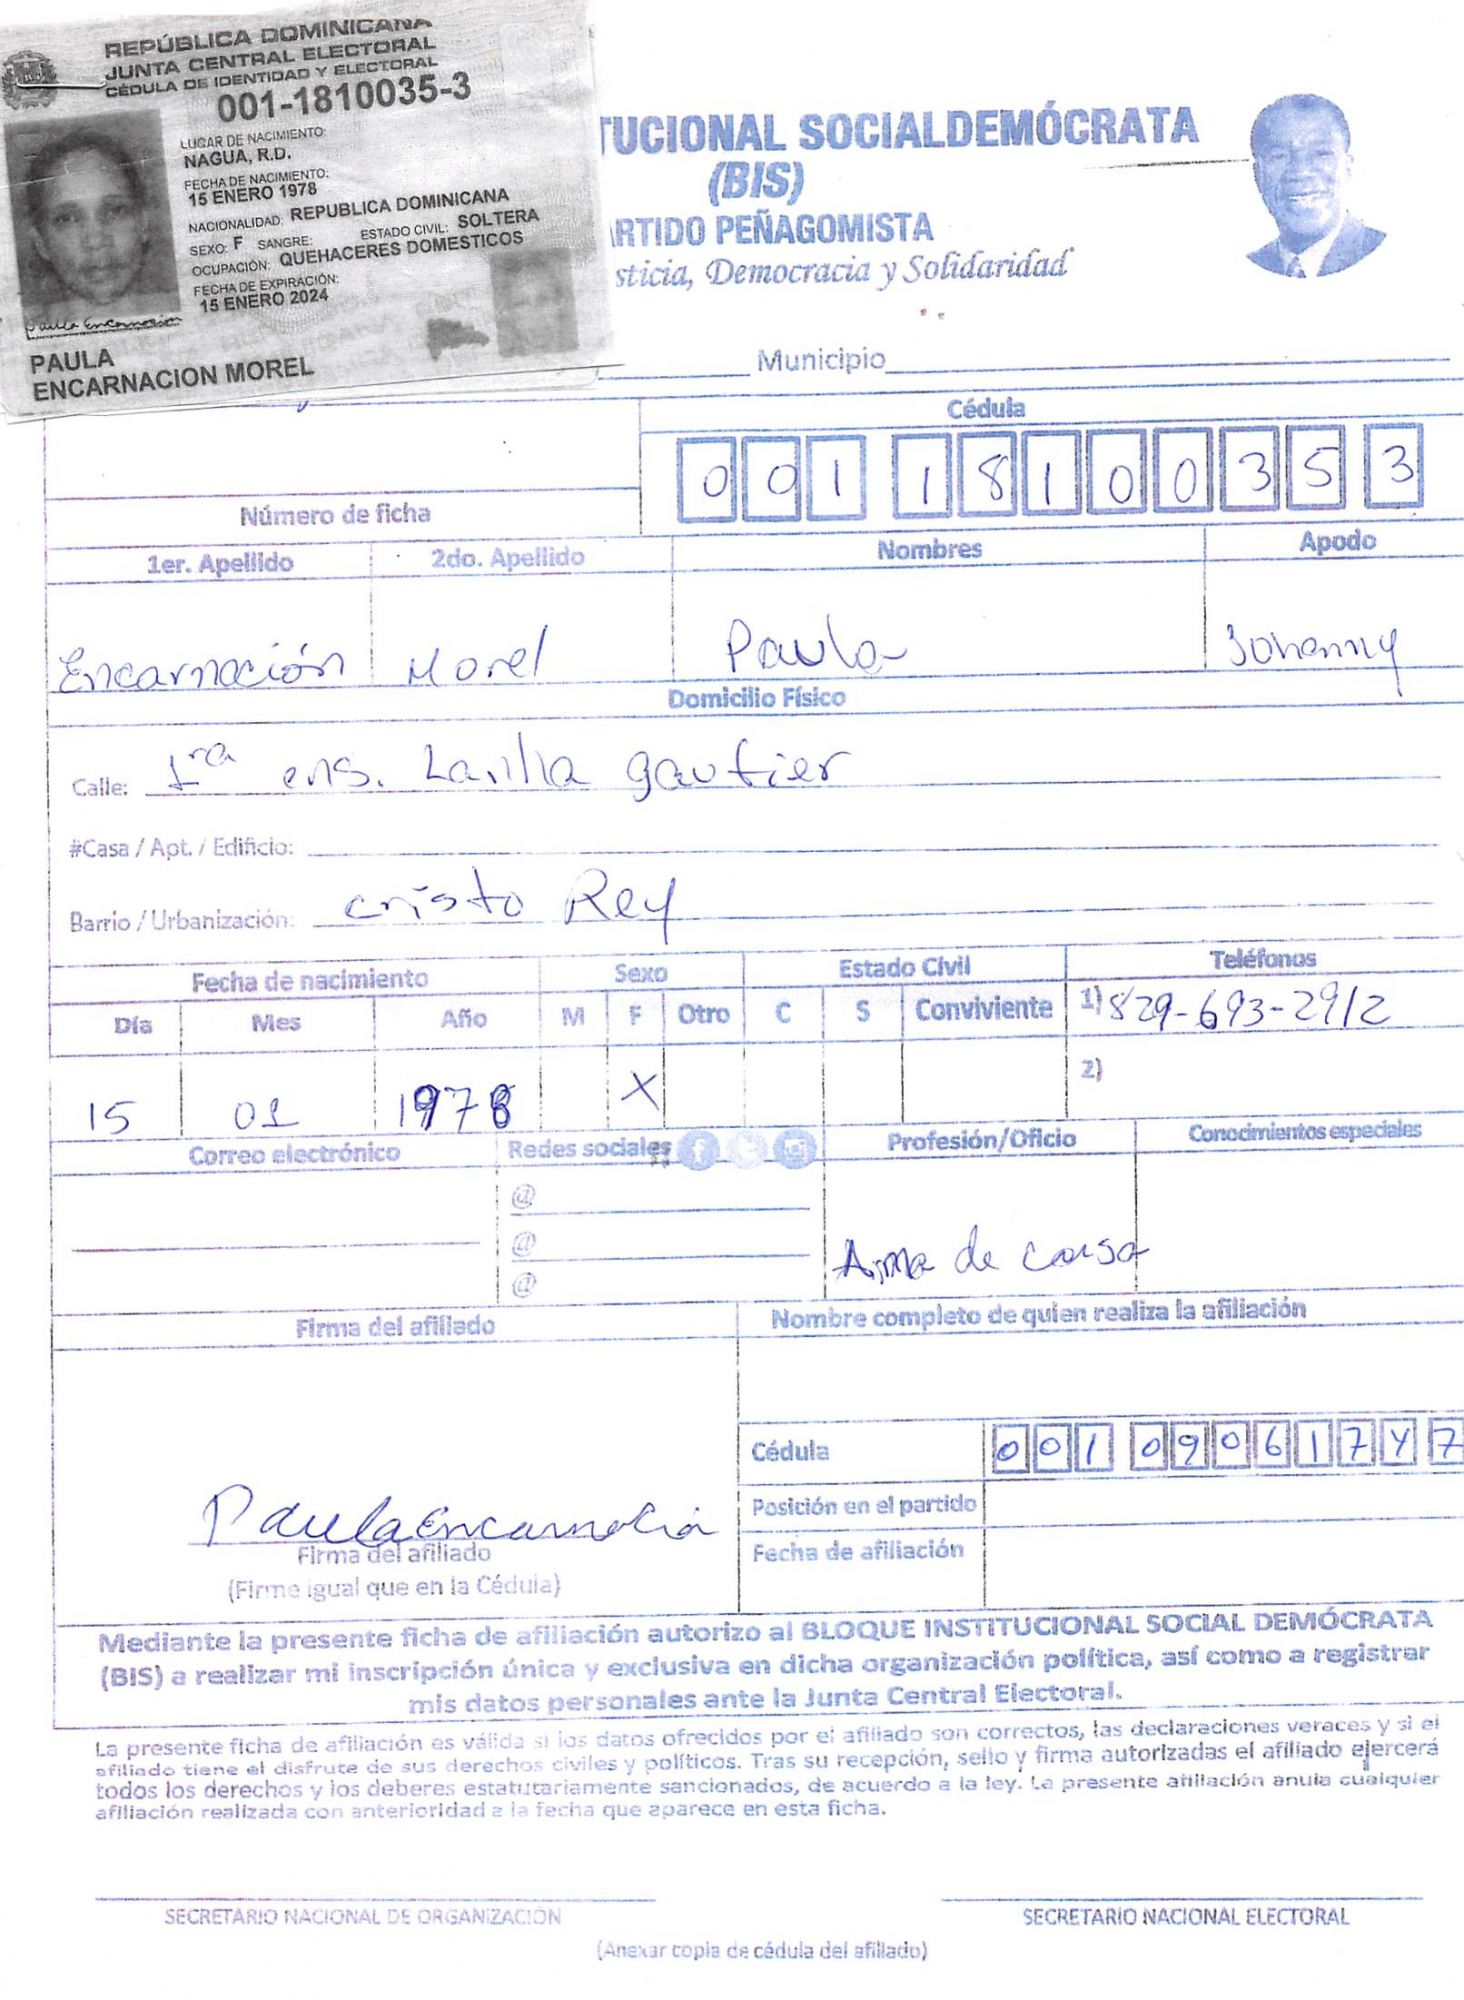 REPÚBLICA DOMINICANA
JUNTA CENTRAL ELECTORAL
CÉDULA DE IDENTIDAD Y ELECTORAL
001-1810035-3
LUGAR DE NACIMIENTO:
NAGUA, R.D.
FECHA DE NACIMIENTO:
15 ENERO 1978
NACIONALIDAD: REPUBLICA DOMINICANA
SEXO: F SANGRE: ESTADO CIVIL: SOLTERA
OCUPACIÓN: QUEHACERES DOMESTICOS
FECHA DE EXPIRACIÓN:
15 ENERO 2024
Paula Encarnacion
PAULA
ENCARNACION MOREL
TUCIONAL SOCIALDEMÓCRATA
(BIS)
ARTIDO PEÑAGOMISTA
sticia, Democracia y Solidaridad
Municipio
Cédula
0 0 1 1 8 1 0 0 3 5 3
Número de ficha
1er. Apellido 2do. Apellido Nombres Apodo
Encarnación Morel Paula Johenny
Domicilio Físico
Calle: 1ra ens. gautier
#Casa / Apt. / Edificio:
Barrio / Urbanización: cristo Rey
Fecha de nacimiento Sexo Estado Civil Teléfonos
Día Mes Año M F Otro C S Conviviente 1) 829-693-2912
2)
15 01 1978 X
Correo electrónico Redes sociales Profesión/Oficio Conocimientos especiales
@
@
@
Ama de casa
Firma del afiliado Nombre completo de quien realiza la afiliación
Cédula 0 0 1 0 9 0 6 1 7 4 7
Posición en el partido
Fecha de afiliación
Paula Encarnación
Firma del afiliado
(Firme igual que en la Cédula)
Mediante la presente ficha de afiliación autorizo al BLOQUE INSTITUCIONAL SOCIAL DEMÓCRATA
(BIS) a realizar mi inscripción única y exclusiva en dicha organización política, así como a registrar
mis datos personales ante la Junta Central Electoral.
La presente ficha de afiliación es válida si los datos ofrecidos por el afiliado son correctos, las declaraciones veraces y si el
afiliado tiene el disfrute de sus derechos civiles y políticos. Tras su recepción, sello y firma autorizadas el afiliado ejercerá
todos los derechos y los deberes estatutariamente sancionados, de acuerdo a la ley. La presente afiliación anula cualquier
afiliación realizada con anterioridad a la fecha que aparece en esta ficha.
SECRETARIO NACIONAL DE ORGANIZACIÓN SECRETARIO NACIONAL ELECTORAL
(Anexar copia de cédula del afiliado)